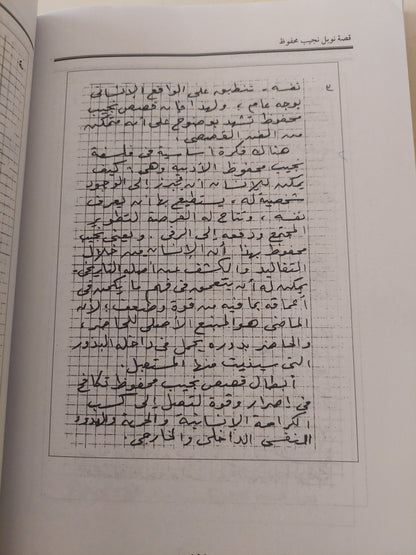 قصة نوبل نجيب محفوظ
٧
نفسه، تنطبق على الواقع الإنسانى
بوجه عام، ولهذا فإن قصص نجيب
محفوظ تشهد بوضوح على أنه متمكن
من الفن القصصى.
هناك فكرة أساسية فى فلسفة
نجيب محفوظ الأدبية وهى: كيف
يمكن للإنسان أن يبرز إلى الوجود
شخصية له، يستطيع بها أن يعرف
نفسه، وتتاح له الفرصة لتطوير
المجتمع ودفعه إلى الرقى. ويعنى نجيب
محفوظ بهذا أن الإنسان من خلال
التقاليد والكشف عن أصله التاريخى
يمكن له أن يتعمق فى فهم ما يكمن فى
أعماقه بما فيه من قوة وضعف؛ لأن
الماضى هو المنبع الأصلى للحاضر،
والحاضر بدوره يحمل فى داخله البذور
التى سينبت منها المستقبل.
أبطال قصص نجيب محفوظ تكافح
فى إصرار وقوة لتصل إلى كسب
الكرامة الإنسانية والحرية والهدوء
النفسى الداخلى والخارجى.